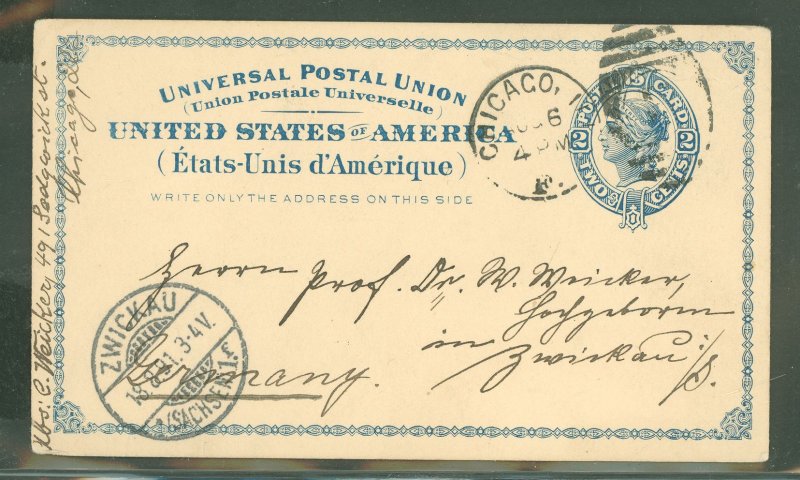 UNIVERSAL POSTAL UNION
(Union Postale Universelle)
UNITED STATES OF AMERICA
(États-Unis d'Amérique)
WRITE ONLY THE ADDRESS ON THIS SIDE
POSTAL CARD
2 2
TWO CENTS
CHICAGO, I
6
4 PM
F.
Herrn Prof. Dr. W. Weicker,
Hochgeboren
in Zwickau i/S.
Germany.
ZWICKAU
3-4V.
(SACHSEN) 1f
Abs: C. Weicker, 491 Sedgwick st.
Chicago,